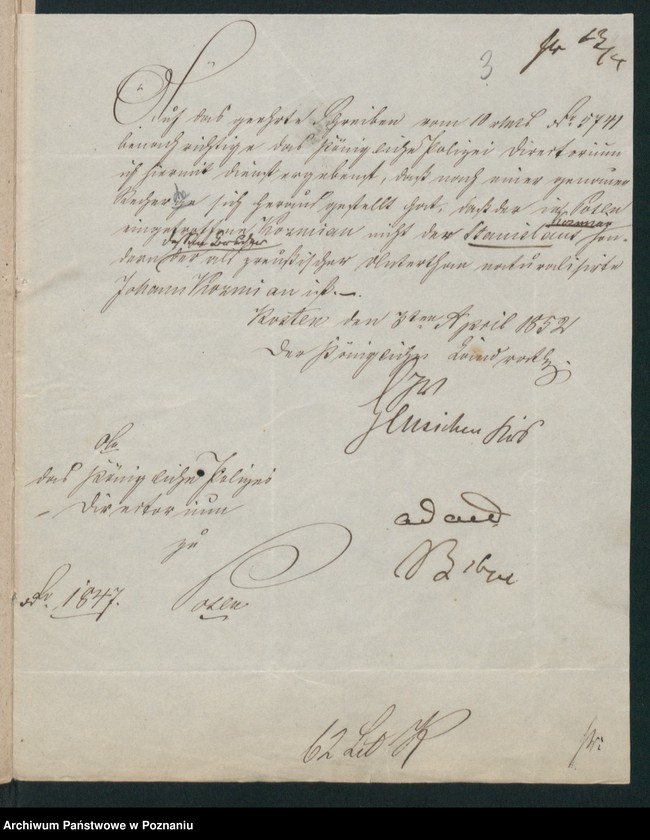 3
pr 13/4
Auf das geehrte Schreiben vom 10 v. Mts. No. 5741
benachrichtige das Königliche Polizei Directorium
ich hiermit dienst ergebenst, daß nach einer genauen
Recherche sich heraus gestellt hat, daß der in Posen
eingetroffene Kozmian nicht der Stanislaus Kozmian son-
dern dessen Bruder der als preußischer Unterthan naturalisirte
Johann Kozmian ist.
Kosten den 8ten April 1852
Der Königliche Landrath
An
das Königliche Polizei
Directorium
zu
Posen
No. 1847.
ad acta
62 Lit K
Archiwum Państwowe w Poznaniu